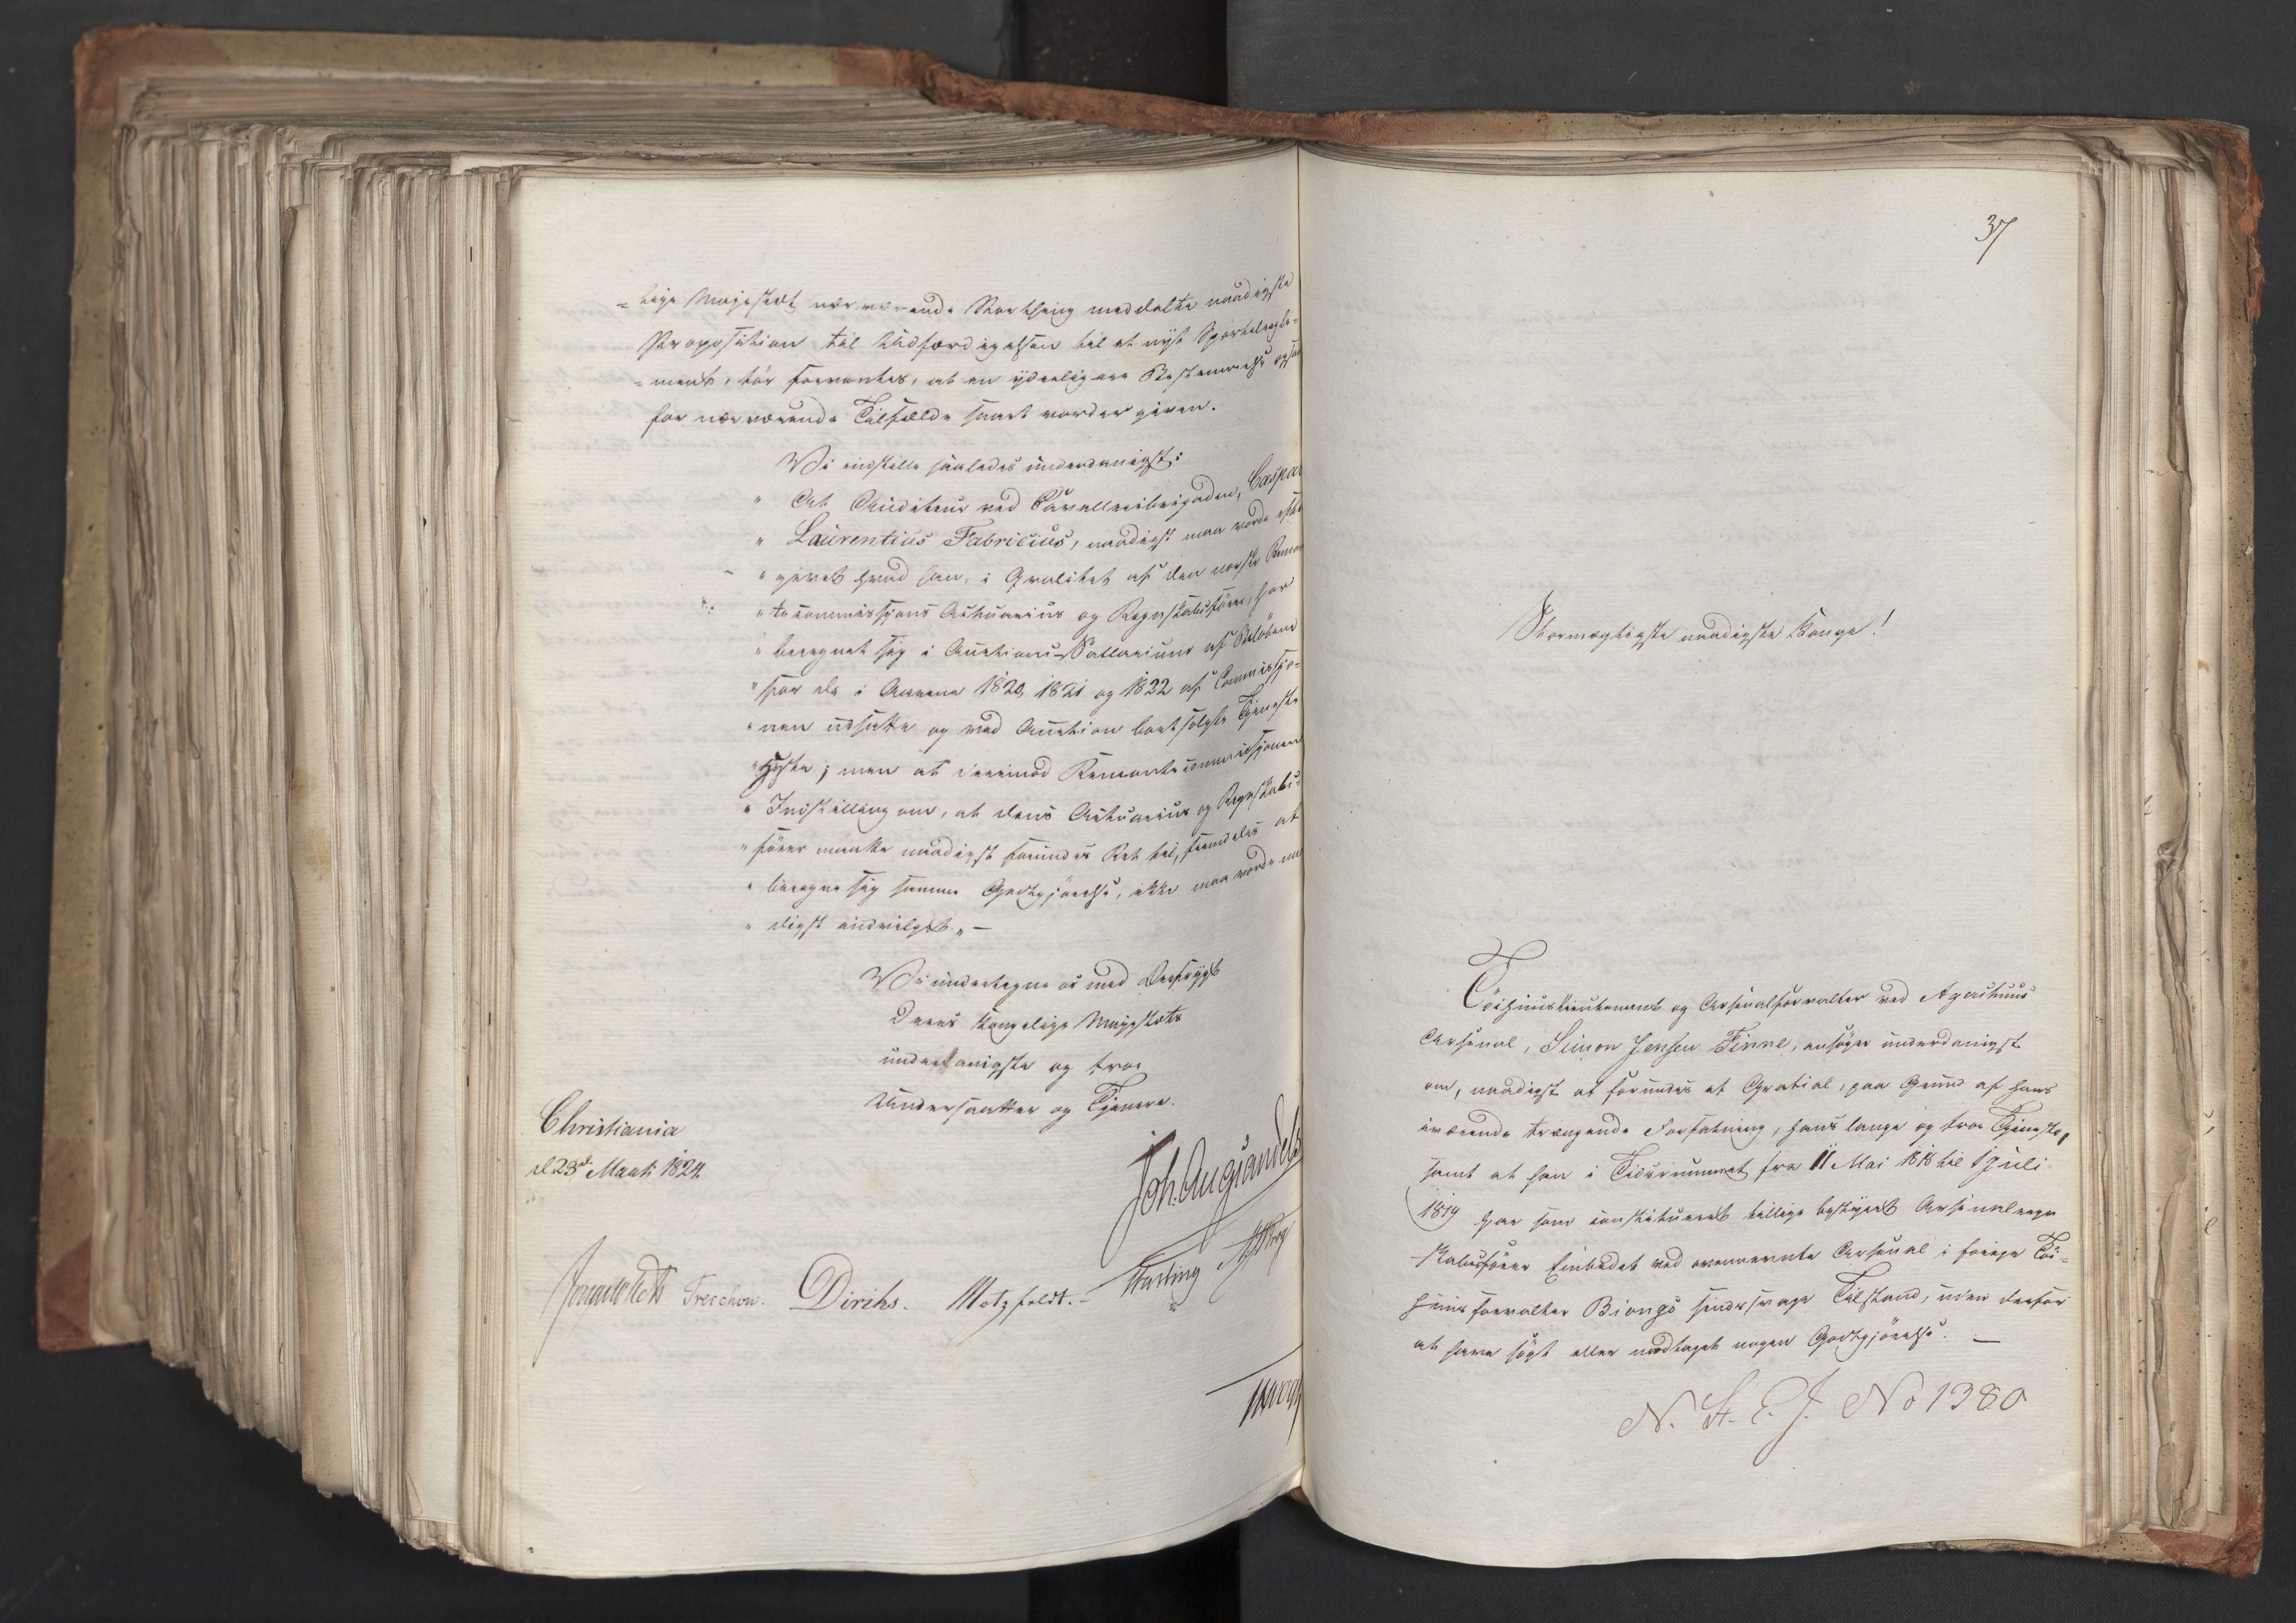 =lige Majestæt nærværende Storthing meddelte naadigste
Proposition til Udfærdigelsen til et nyt Sportelregle=
=ment, tör forventes, at en yderligere Bestemmelse ogsaa
for nærværende Tilfælde snart vorder given.
Vi indstille saaledes underdanigst:
" At Auditeur ved Cavalleribrigaden, Caspar
" Laurentius Fabricius, naadigst maa vorde efter
" givet hvad han, i Qvalitet af den norske Remon
" tecommissjons Actuarius og Regnskabsförer, har
" beregnet sig i Auctions-Sallarium af Belöbene
" for de i Aarene 1820, 1821 og 1822 af Commissjo=
" nen udsatte og ved Auction bortsolgte Tjeneste
" Heste; men at derimod Remontecommissjonens
" Indstilling om, at dens Actuarius og Regnskabs=
" förer maatte naadigst forundes Ret til, fremdeles at
" beregne sig samme Godtgjörelse, ikke maa vorde naa
" digst indvilget. " —
Vi undertegne os med Ærefrygt
Deres Kongelige Majestæts
underdanigste og troe
Undersaatter og Tjenere.
Christiania
d 23de Marti 1824.
Joh. Aug Sandels
Sommerhielm Treschow. Diriks. Motzfeldt. Fasting Krog
37
Stormægtigste naadigste Konge!
Töihuuslieutenant og Arsenalforvalter ved Agershuus
Arsenal, Simon Jensen Finne, ansöger underdanigst
om, naadigst at forundes et Gratial, paa Grund af hans
værende trængende Forfatning, hans lange og troe Tjeneste,
samt at han i Tidsrummet fra 11 Mai 1818 til 1 Juli
1819 har som constitueret tillige bestyret Arsenalregn
skabsförer Embedet ved ovennævnte Arsenal i forrige Töi=
huusforvalter Biongs sindssvage Tilstand, uden derfor
at have sögt eller modtaget nogen Godtgjörelse. —
N. St. E. J. No 1380